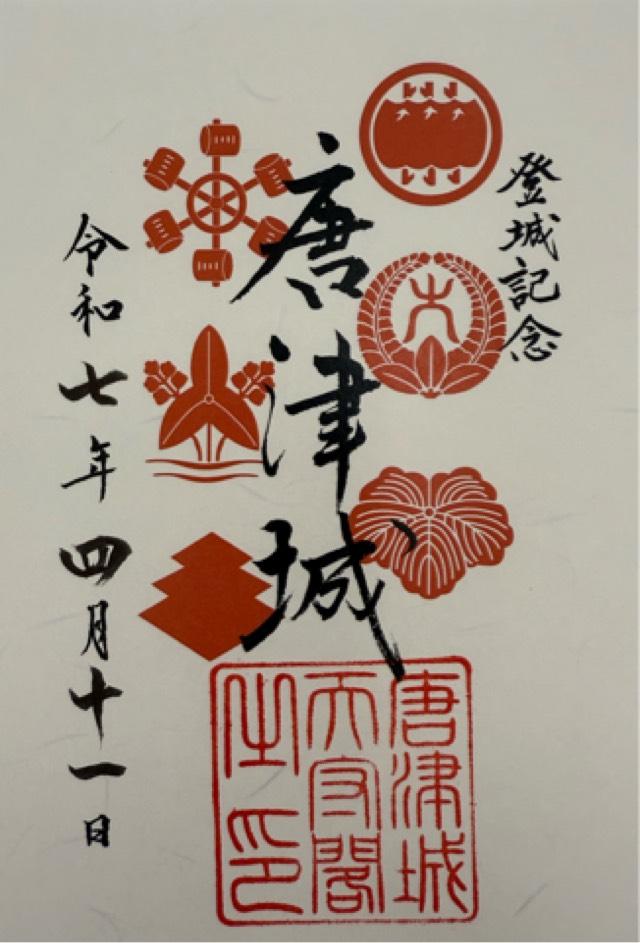 登城記念
大
唐津城
令和七年四月十一日
唐津城
天守閣
之印